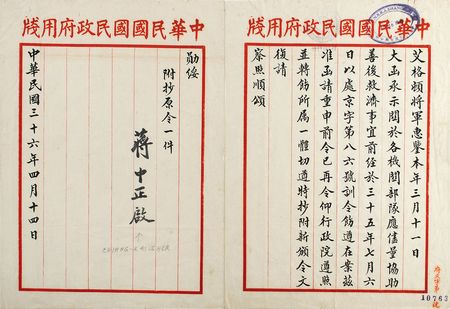 中華民國國民政府用牋
艾格頓將軍惠鑒本年三月十一日
大函承示關於各機關部隊應儘量協助
善後救濟事宜前經於三十五年七月六
日以處京字第八六號訓令飭遵在案茲
准函請重申前令已再令仰行政院遵照
並轉飭所屬一體切遵特抄附新頒令文
復請
察照順頌
10763
中華民國國民政府用牋
勛綏
附抄原令一件
蔣中正啟
中華民國三十六年四月十四日